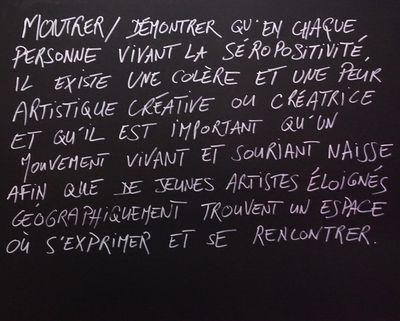 MONTRER/ DÉMONTRER QU'EN CHAQUE
PERSONNE VIVANT LA SÉROPOSITIVITÉ,
IL EXISTE UNE COLÈRE ET UNE PEUR
ARTISTIQUE CRÉATIVE OU CRÉATRICE
ET QU'IL EST IMPORTANT QU'UN
MOUVEMENT VIVANT ET SOURIANT NAISSE
AFIN QUE DE JEUNES ARTISTES ÉLOIGNÉS
GÉOGRAPHIQUEMENT TROUVENT UN ESPACE
OÙ S'EXPRIMER ET SE RENCONTRER.